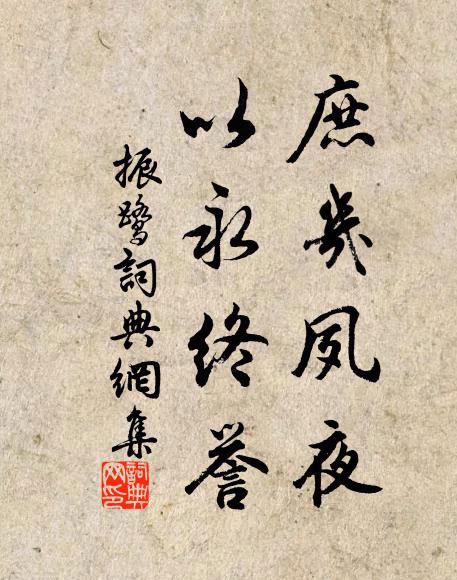 庶幾夙夜
以永終譽
振鷺詞典網集
詞典網印